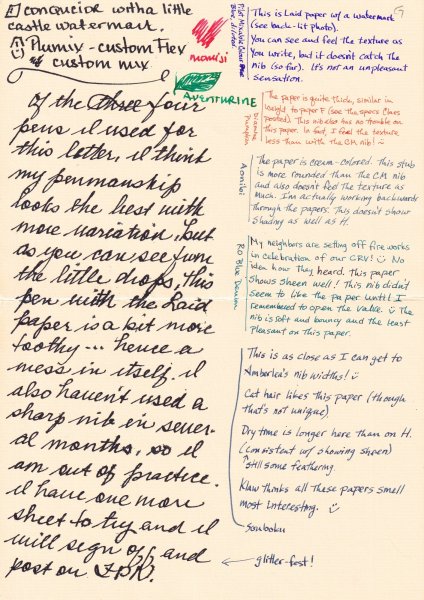 conqueror with a little
castle watermark.
Plumix - custom Flex
custom mix
momiji
AVENTURINE
Of the three four
pens I used for
this letter, I think
my penmanship
looks the best with
more variation, but
as you can see from
the little drops, this
pen with the Laid
paper is a bit more
toothy... hence a
mess in itself. I
also haven't used a
sharp nib in sever-
al months, so I
am out of practice.
I have one more
sheet to try and I
will sign off and
post on FPN.
G
This is Laid paper w/ a watermark
(see back-lit photo).
You can see and feel the texture as
you write, but it doesn't catch the
nib (so far). It's not an unpleasant
sensation.
Diamine
Pumpkin
The paper is quite thick, similar in
weight to paper F (see the specs Claes
posted). This nib also has no trouble on
this paper. In fact, I feel the texture
less than with the CM nib!
Aonibi
The paper is cream-colored. This stub
is more rounded than the CM nib
and also doesn't feel the texture as
much. I'm actually working backwards
through the papers. This doesn't show
shading as well as H.
RO Blue Denim
My neighbors are setting off fireworks
in celebration of our CRV! No
idea how they heard. This paper
shows sheen well! This nib didn't
seem to like the paper until I
remembered to open the valve. The
nib is soft and bouncy and the least
pleasant on this paper.
This is as close as I can get to
Amberlea's nib widths!
Cat hair likes this paper (though
that's not unique)
Dry time is longer here than on H.
(consistent w/ showing sheen)
still some feathering
Klaw thinks all these papers smell
most interesting.
Souboku
glitter-fest!